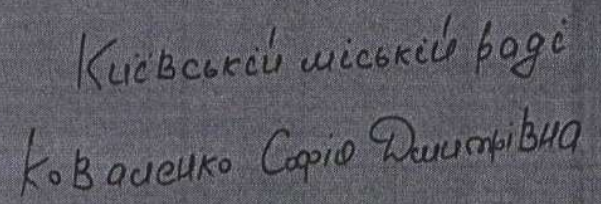 Київській міській раді
Коваленко Софія Дмитрівна